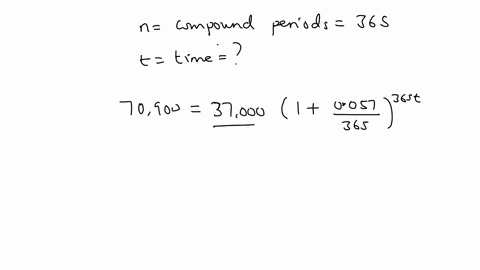 n= compound periods = 365
t = time = ?
70,900 = 37,000 (1 + 0.057/365)^365t